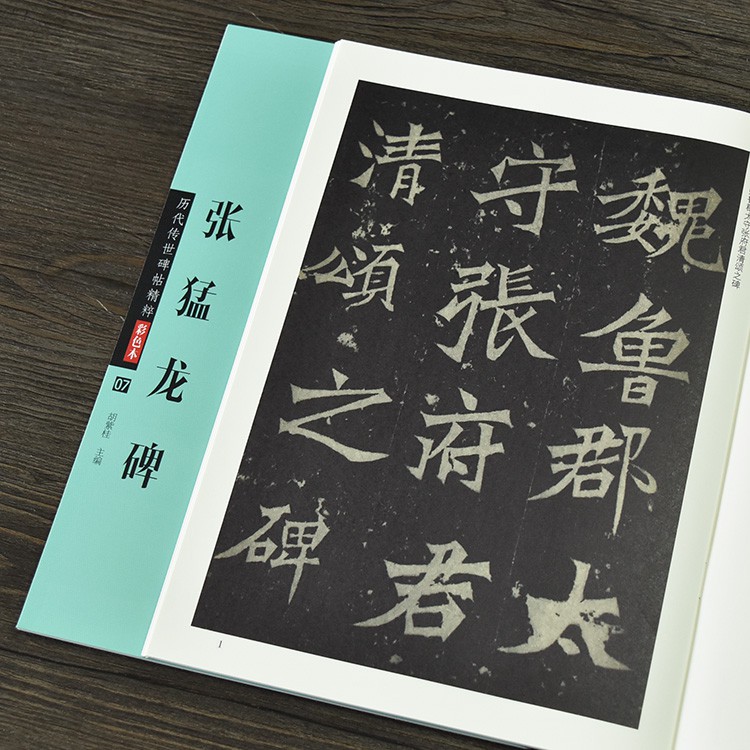 张猛龙碑
历代传世碑帖精粹
彩色本
07
胡紫桂 主编
魏魯郡太
守張府君
清頌之碑
太守张府君清颂之碑
1